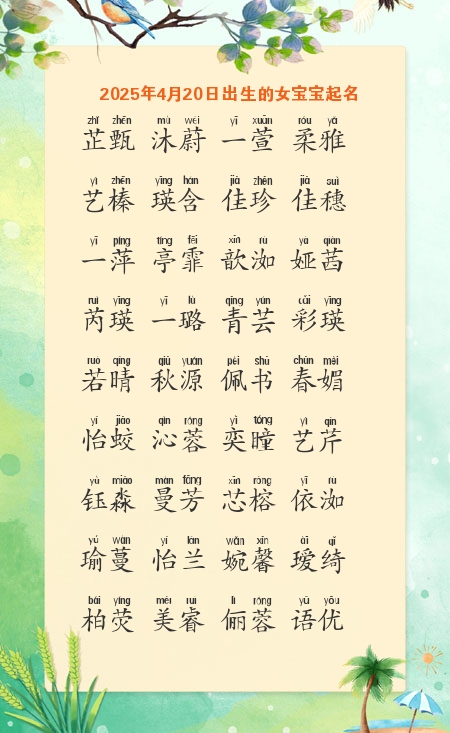 2025年4月20日出生的女宝宝起名
zhǐ zhēn mù wèi yī xuān róu yǎ
芷甄 沐蔚 一萱 柔雅
yì zhēn yīng hán jiā zhēn jiā suì
艺榛 瑛含 佳珍 佳穗
yī píng tíng fēi xīn rù yà qiàn
一萍 亭霏 歆洳 娅茜
ruì yīng yī lù qīng yún cǎi yīng
芮瑛 一璐 青芸 彩瑛
ruò qíng qiū yuán pèi shū chūn mèi
若晴 秋源 佩书 春媚
yí jiāo qìn róng yì tóng yì qín
怡蛟 沁蓉 奕瞳 艺芹
yù miǎo màn fāng xīn róng yī rù
钰淼 曼芳 芯榕 依洳
yú wàn yí lán wǎn xīn ài qǐ
瑜蔓 怡兰 婉馨 瑷绮
bǎi yíng měi ruì lì róng yǔ yōu
柏荧 美睿 俪蓉 语优